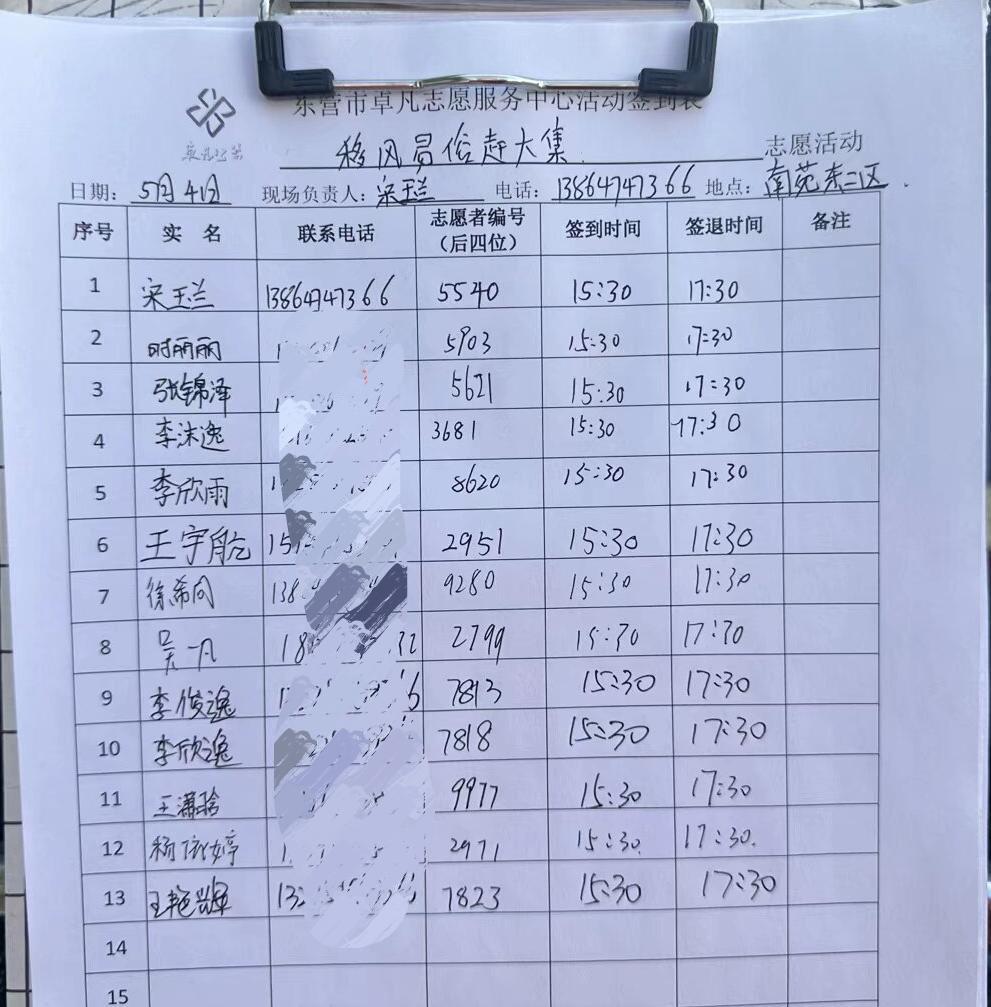 东营市卓凡志愿服务中心活动签到表
移风易俗赶大集 志愿活动
日期：5月4日 现场负责人：宋玉兰 电话：13864747366 地点：南苑东二区.
序号 实 名 联系电话 志愿者编号（后四位） 签到时间 签退时间 备注
1 宋玉兰 13864747366 5540 15:30 17:30
2 时丽丽 5903 15:30 17:30
3 张锦泽 5621 15:30 17:30
4 李沫逸 3681 15:30 17:30
5 李欣雨 8620 15:30 17:30
6 王宇航 2951 15:30 17:30
7 徐希 9280 15:30 17:30
8 吴一凡 2799 15:30 17:30
9 李俊逸 7813 15:30 17:30
10 李欣逸 7818 15:30 17:30
11 王潇晗 9977 15:30 17:30
12 杨依婷 2971 15:30. 17:30.
13 王艳辉 7823 15:30 17:30
14
15